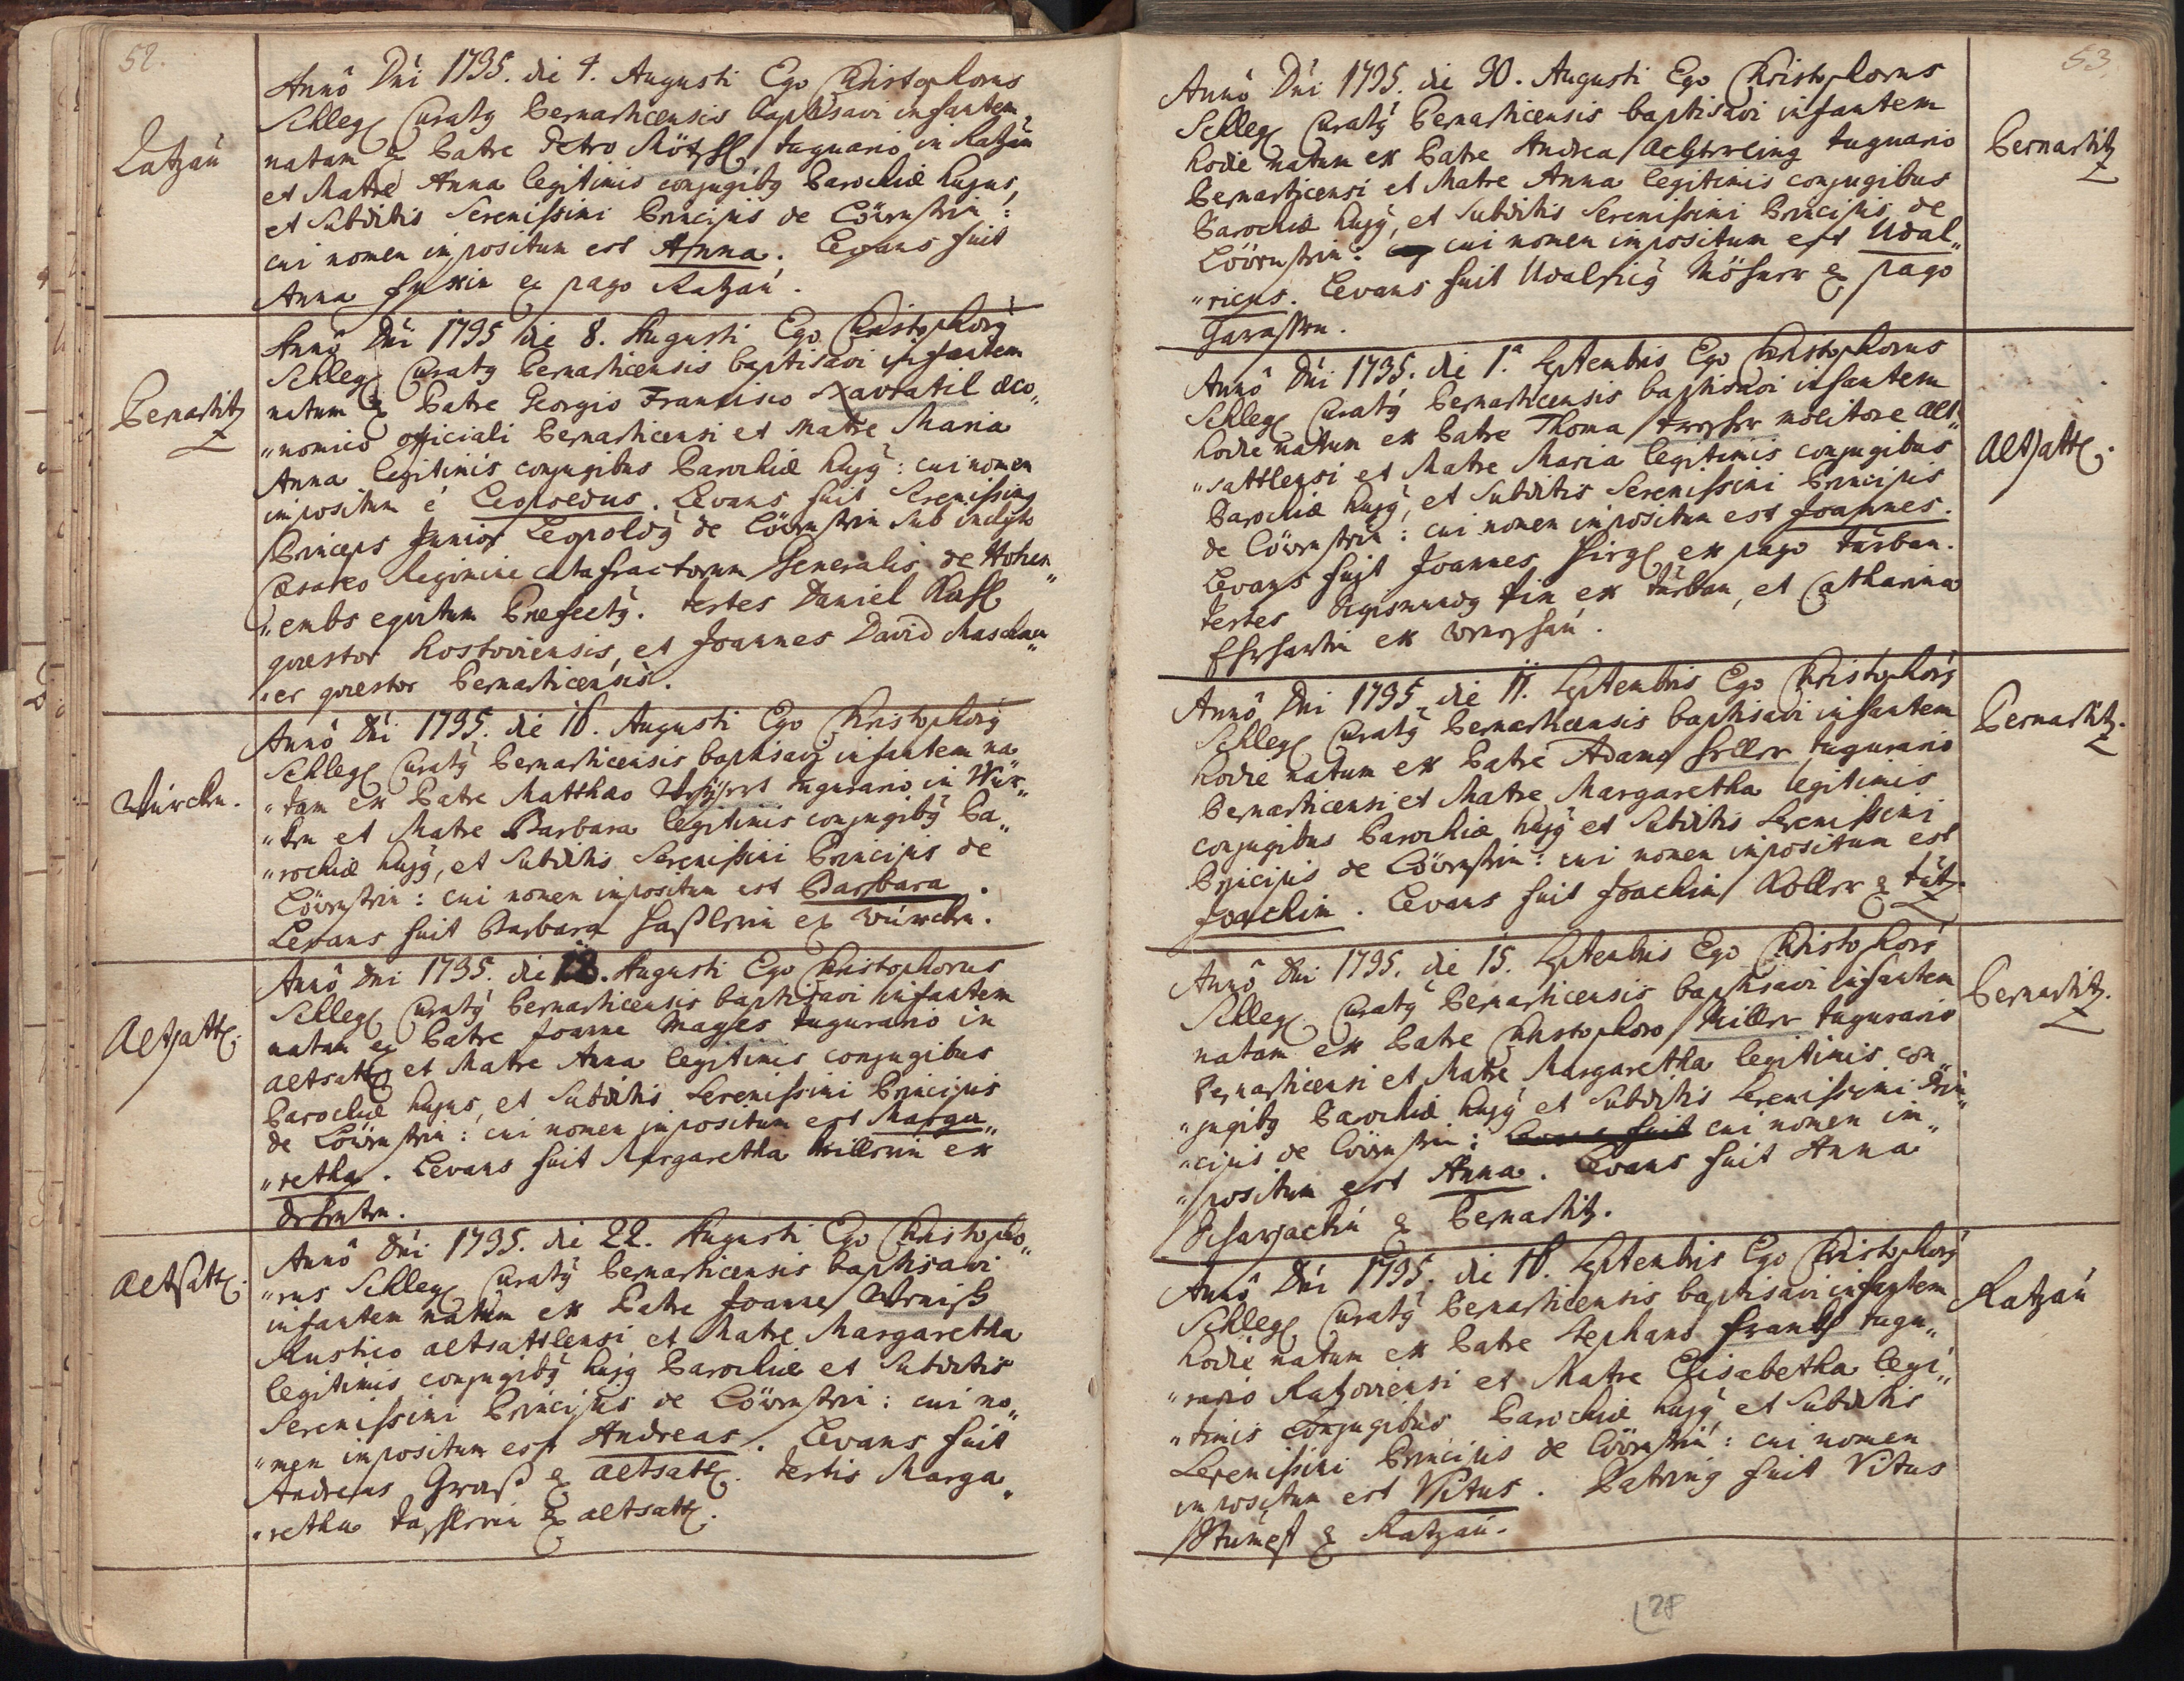 52.
Katzaú
Annô Dni 1735. die 4. Augusti Ego Christophorus
Schlegl Curatg Bernarticensis baptisavi infantem
natam ex Patre Petro tuguario in Katzaú
et Matre Anna legitimis conjugibg Parochiæ hujus,
et Subditis Serenissimi Principis de Löwenstein:
cui nomen impositum est Anna. Levans fuit
Anna ex pago Katzaú.
Bernartitz
Annô Dni 1735 die 8. Augusti Ego Christophorg
Schlegl Curatg Bernarticensis baptisavi infantem
natum ex Patre Georgio Francisco Navratil œco„
„nomico officiali Bernarticensi et Matre Maria
Anna legitimis conjugibus Parochiæ hujg: cui nomen
impositum è Leopoldus. Levans fuit Serenissimg
Princeps Junior Leopoldg de Löwenstein sub inclyto
Cæsareo Regimine Catafractorum Generalis de Hohen„
„embs equitum Præfectg. testes Daniel
quæstor Kostoviensis, et Joannes David
„er quæstor Bernarticensis.
Würcken.
Annô Dni 1735. die 16. Augusti Ego Christophorg
Schlegl Curatg Bernarticensis baptisavi infantem na„
„tam ex Patre Matthæo tugurario in Wür„
„ken et Matre Barbara legitimis conjugibg Pa„
„rochiæ hujg, et Subditis Serenissimi Principis de
Löwenstein: cui nomen impositum est Barbara.
Levans fuit Barbara Haßlerin ex Würcken.
Altsattl.
Annô Dni 1735. die 18. Augusti Ego Christophorus
Schlegl Curatg Bernarticensis baptisavi infantem
natam ex Patre Joanne Mages tugurario in
altsattl et Matre Anna legitimis conjugibus
Parochiæ hujus, et Subditis Serenissimi Principis
de Löwenstein: cui nomen impositum est Marga„
„retha. Levans fuit Margaretha Millerin ex

Altsattl.
Annô Dni 1735. die 22. Augusti Ego Christopho„
„rus Schlegl Curatg Bernarticensis baptisavi
infantem natum ex Patre Joanne Weniß
Rustico altsattlensi et Matre Margaretha
legitimis conjugibg hujg Parochiæ et Subditis
Serenissimi Principis de Löwenstein: cui no„
„men impositum est Andreas. Levans fuit
Andreas Groß ex altsattl. testis Marga„
„retha ex altsattl.
53.
Annô Dni 1735. die 30. Augusti Ego Christophorus
Schlegl Curatg Bernarticensis baptisavi infantem
hodie natum ex Patre Andrea tuguario
Bernarticensi et Matre Anna legitimis conjugibus
Parochiæ hujg, et Subditis Serenissimi Principis de
Löwenstein: cui nomen impositum est Udal„
„ricus. Levans fuit Udalricg ex pago

Bernartitz
Annô Dni 1735. die 1.ª Septembris Ego Christophorus
Schlegl Curatg Bernarticensis baptisavi infantem
hodie natum ex Patre Thoma molitore alt„
„sattlensi et Matre Maria legitimis conjugibus
Parochiæ hujg, et Subditis Serenissimi Principis
de Löwenstein: cui nomen impositum est Joannes.
Levans fuit Joannes ex pago túrban.
testes Sigismundg ex túrban, et Catharina
ex
Altsattl.
Annô Dni 1735. die 11. Septembris Ego Christophorg
Schlegl Curatg Bernarticensis baptisavi infantem
hodie natum ex Patre Adamo Heller tugurario
Bernarticensi et Matre Margaretha legitimis
conjugibus Parochiæ hujg et Subditis Serenissimi
Principis de Löwenstein: cui nomen impositum est
Joachim. Levans fuit Joachim Koller ex
Bernartitz.
Annô Dni 1735. die 15. Septembris Ego Christophorg
Schlegl Curatg Bernarticensis baptisavi infantem
natam ex Patre Christophoro Miller tugurario
Bernarticensi et Matre Margaretha legitimis con„
„jugibg Parochiæ hujg et Subditis Serenissimi Prin„
„cipis de Löwenstein: Levans fuit cui nomen im„
„positum est Anna. Levans fuit Anna
ex Bernartitz.
Bernartitz.
Annô Dni 1735. die 16. Septembris Ego Christophorg
Schlegl Curatg Bernarticensis baptisavi infantem
hodie natum ex Patre Stephano Frankh tugu„
„rario Katzoviensi et Matre Elisabetha legi„
„timis conjugibus Parochiæ hujg, et Subditis
Serenissimi Principis de Löwenstein: cui nomen
impositum est Vitus. Patring fuit Vitus
ex Katzaú.
Katzaú
28